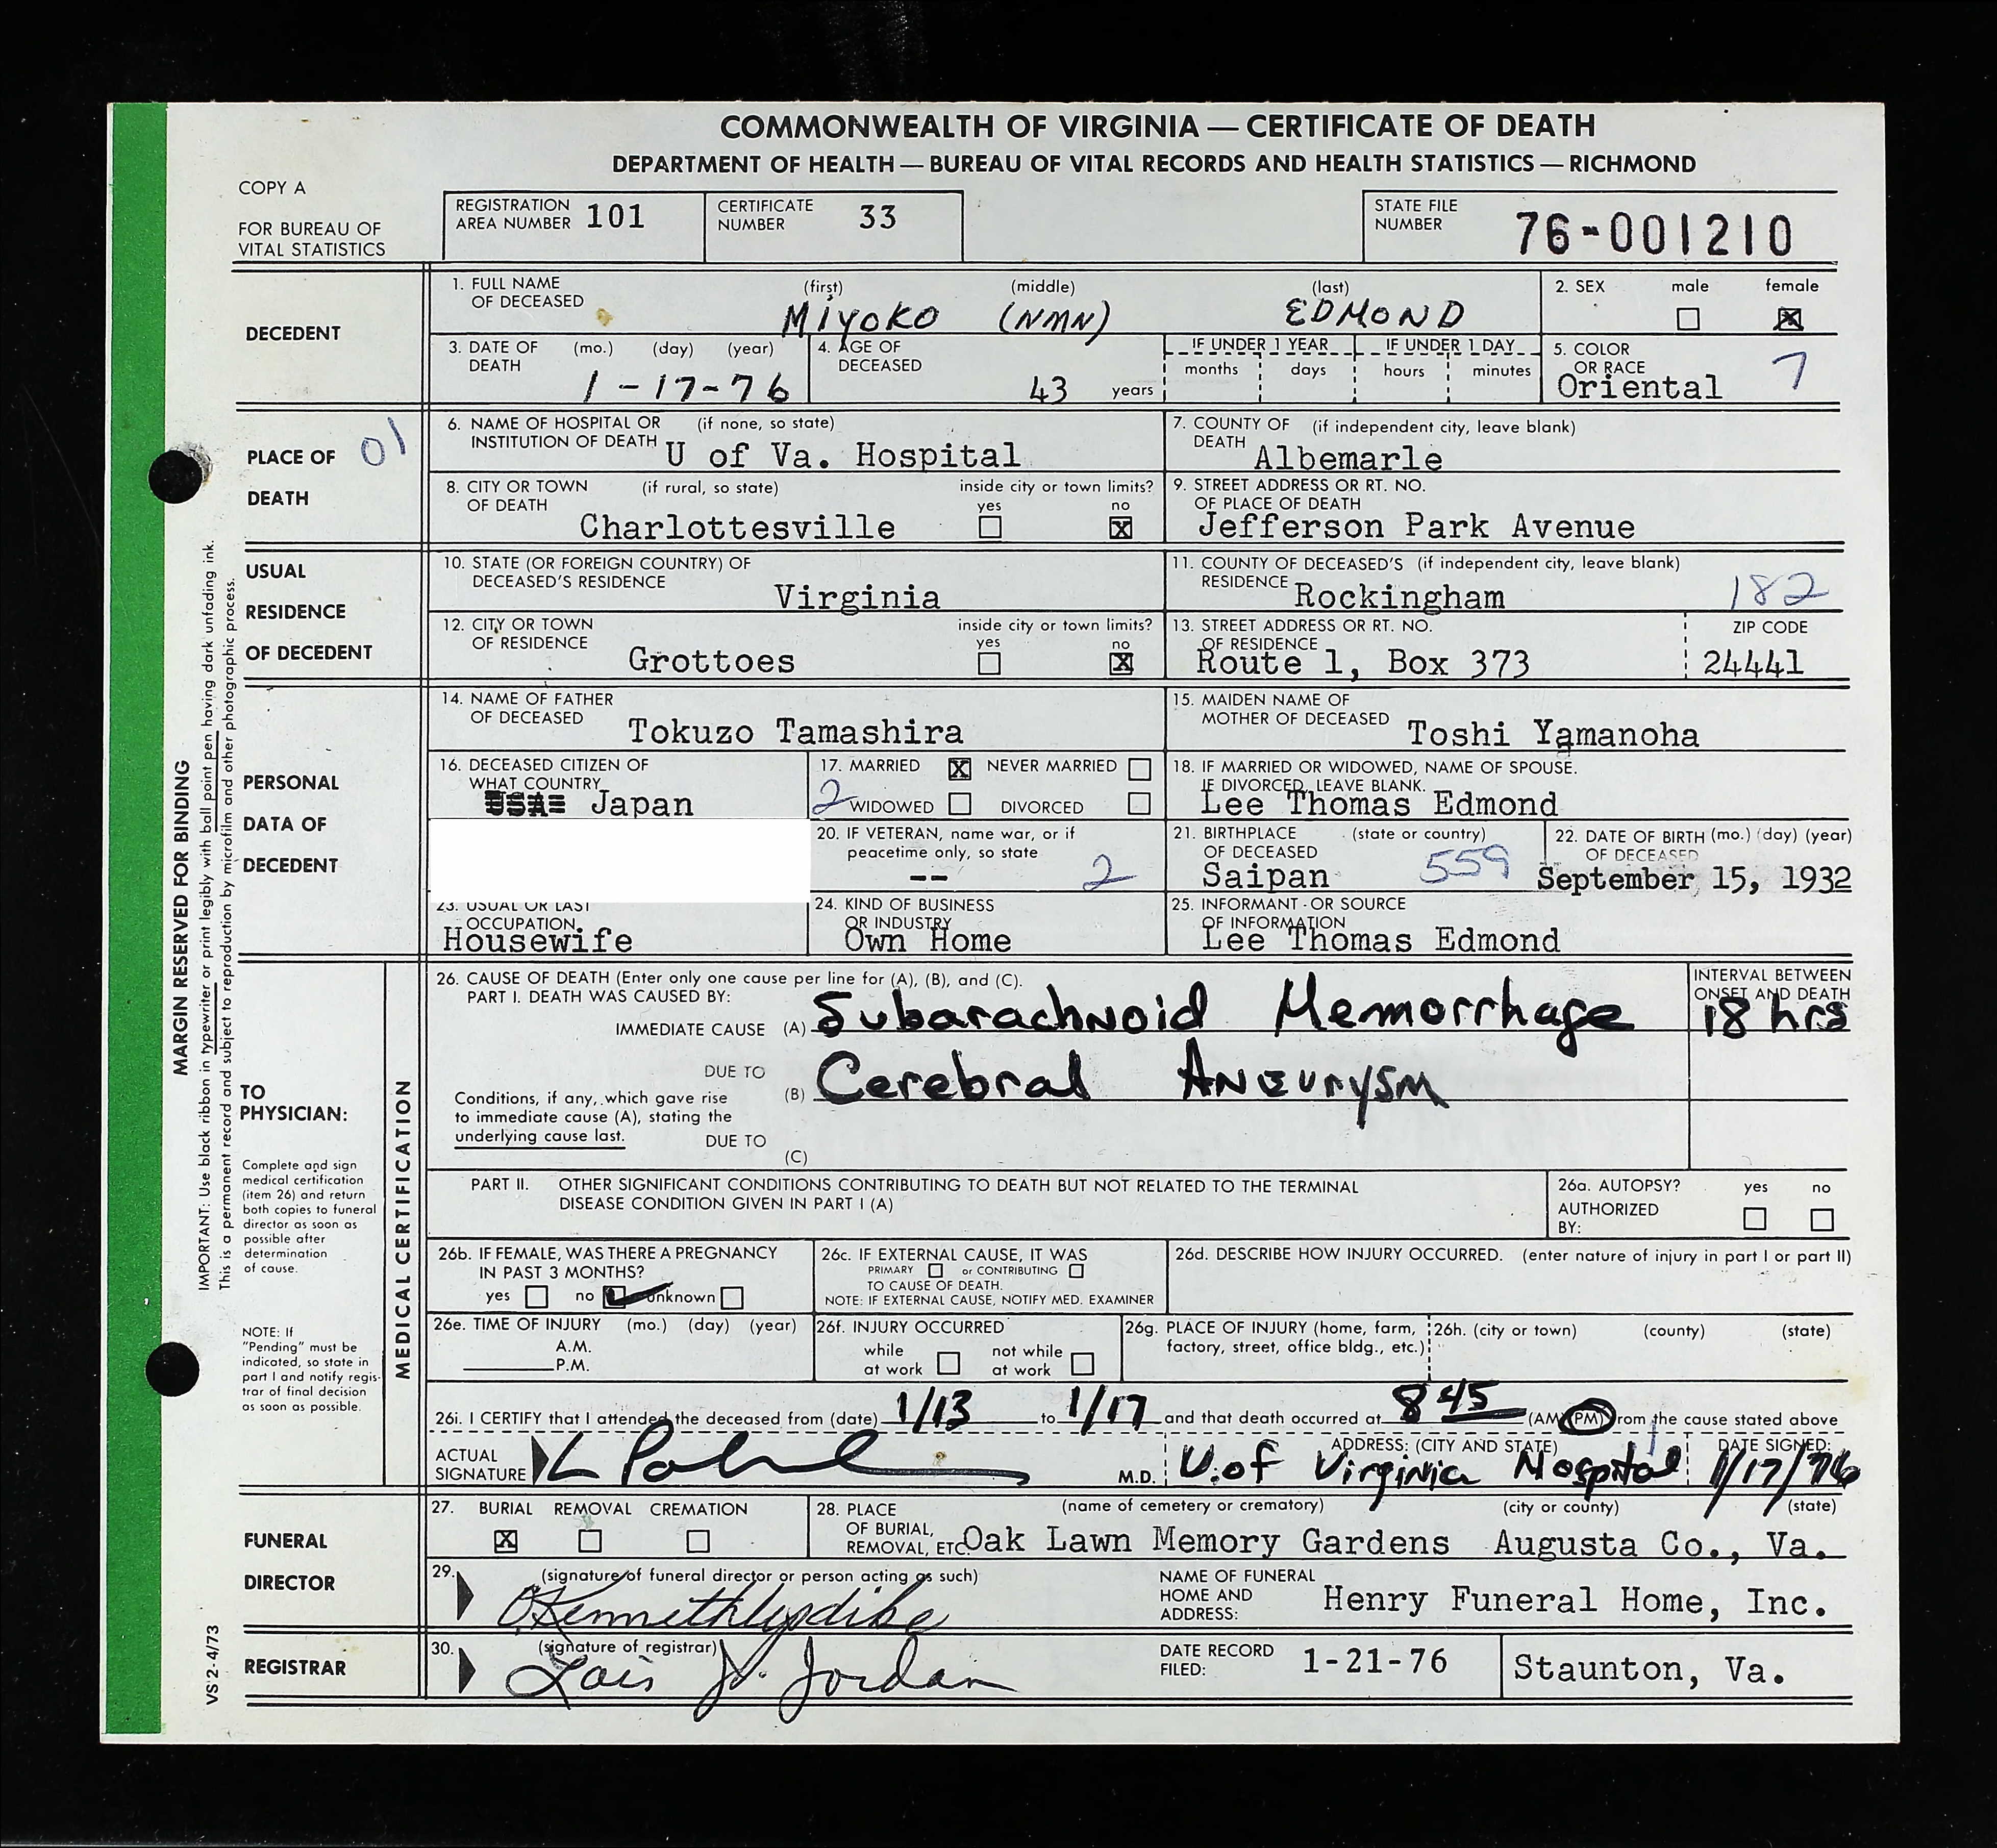 COMMONWEALTH OF VIRGINIA — CERTIFICATE OF DEATH
DEPARTMENT OF HEALTH — BUREAU OF VITAL RECORDS AND HEALTH STATISTICS — RICHMOND
COPY A
FOR BUREAU OF
VITAL STATISTICS
REGISTRATION
AREA NUMBER 101
CERTIFICATE
NUMBER 33
STATE FILE
NUMBER 76-001210
DECEDENT
1. FULL NAME
OF DECEASED
(first) (middle) (last)
MIYOKO (NMN) EDMOND
2. SEX male female
☐ ☒
3. DATE OF (mo.) (day) (year)
DEATH
1-17-76
4. AGE OF
DECEASED
43 years
IF UNDER 1 YEAR IF UNDER 1 DAY
months days hours minutes
5. COLOR
OR RACE 7
Oriental
PLACE OF 01
DEATH
6. NAME OF HOSPITAL OR (if none, so state)
INSTITUTION OF DEATH U of Va. Hospital
7. COUNTY OF (if independent city, leave blank)
DEATH Albemarle
8. CITY OR TOWN (if rural, so state) inside city or town limits?
OF DEATH yes no
Charlottesville ☐ ☒
9. STREET ADDRESS OR RT. NO.
OF PLACE OF DEATH
Jefferson Park Avenue
USUAL
RESIDENCE
OF DECEDENT
10. STATE (OR FOREIGN COUNTRY) OF
DECEASED'S RESIDENCE
Virginia
11. COUNTY OF DECEASED'S (if independent city, leave blank)
RESIDENCE Rockingham 182
12. CITY OR TOWN inside city or town limits?
OF RESIDENCE yes no
Grottoes ☐ ☒
13. STREET ADDRESS OR RT. NO. ZIP CODE
OF RESIDENCE
Route 1, Box 373 24441
PERSONAL
DATA OF
DECEDENT
14. NAME OF FATHER
OF DECEASED Tokuzo Tamashira
15. MAIDEN NAME OF
MOTHER OF DECEASED Toshi Yamanoha
16. DECEASED CITIZEN OF
WHAT COUNTRY
USA Japan
17. MARRIED ☒ NEVER MARRIED ☐
2 WIDOWED ☐ DIVORCED ☐
18. IF MARRIED OR WIDOWED, NAME OF SPOUSE.
IF DIVORCED, LEAVE BLANK.
Lee Thomas Edmond
20. IF VETERAN, name war, or if
peacetime only, so state
-- 2
21. BIRTHPLACE (state or country)
OF DECEASED 559
Saipan
22. DATE OF BIRTH (mo.) (day) (year)
OF DECEASED
September 15, 1932
23. USUAL OR LAST
OCCUPATION
Housewife
24. KIND OF BUSINESS
OR INDUSTRY
Own Home
25. INFORMANT - OR SOURCE
OF INFORMATION
Lee Thomas Edmond
TO
PHYSICIAN:
Complete and sign
medical certification
(item 26) and return
both copies to funeral
director as soon as
possible after
determination
of cause.
NOTE: If
"Pending" must be
indicated, so state in
part I and notify regis-
trar of final decision
as soon as possible.
MEDICAL CERTIFICATION
26. CAUSE OF DEATH (Enter only one cause per line for (A), (B), and (C).
PART I. DEATH WAS CAUSED BY:
IMMEDIATE CAUSE (A) Subarachnoid Hemorrhage
INTERVAL BETWEEN
ONSET AND DEATH
18 hrs
DUE TO
(B) Cerebral Aneurysm
Conditions, if any, which gave rise
to immediate cause (A), stating the
underlying cause last. DUE TO
(C)
PART II. OTHER SIGNIFICANT CONDITIONS CONTRIBUTING TO DEATH BUT NOT RELATED TO THE TERMINAL
DISEASE CONDITION GIVEN IN PART I (A)
26a. AUTOPSY? yes no
AUTHORIZED
BY: ☐ ☐
26b. IF FEMALE, WAS THERE A PREGNANCY
IN PAST 3 MONTHS?
yes ☐ no ☑ unknown ☐
26c. IF EXTERNAL CAUSE, IT WAS
PRIMARY ☐ or CONTRIBUTING ☐
TO CAUSE OF DEATH.
NOTE: IF EXTERNAL CAUSE, NOTIFY MED. EXAMINER
26d. DESCRIBE HOW INJURY OCCURRED. (enter nature of injury in part I or part II)
26e. TIME OF INJURY (mo.) (day) (year)
A.M.
P.M.
26f. INJURY OCCURRED
while not while
at work ☐ at work ☐
26g. PLACE OF INJURY (home, farm,
factory, street, office bldg., etc.)
26h. (city or town) (county) (state)
26i. I CERTIFY that I attended the deceased from (date) 1/13 to 1/17 and that death occurred at 8 45 (AM) (PM) from the cause stated above
ACTUAL
SIGNATURE M.D.
ADDRESS: (CITY AND STATE)
U. of Virginia Hospital
DATE SIGNED:
1/17/76
FUNERAL
DIRECTOR
27. BURIAL REMOVAL CREMATION
☒ ☐ ☐
28. PLACE
OF BURIAL,
REMOVAL, ETC.
(name of cemetery or crematory) (city or county) (state)
Oak Lawn Memory Gardens Augusta Co., Va.
29. (signature of funeral director or person acting as such)
NAME OF FUNERAL
HOME AND
ADDRESS: Henry Funeral Home, Inc.
REGISTRAR
30. (signature of registrar)
Lois J. Jordan
DATE RECORD
FILED: 1-21-76
Staunton, Va.
MARGIN RESERVED FOR BINDING
IMPORTANT: Use black ribbon in typewriter or print legibly with ball point pen having dark unfading ink.
This is a permanent record and subject to reproduction by microfilm and other photographic process.
VS 2-4/73